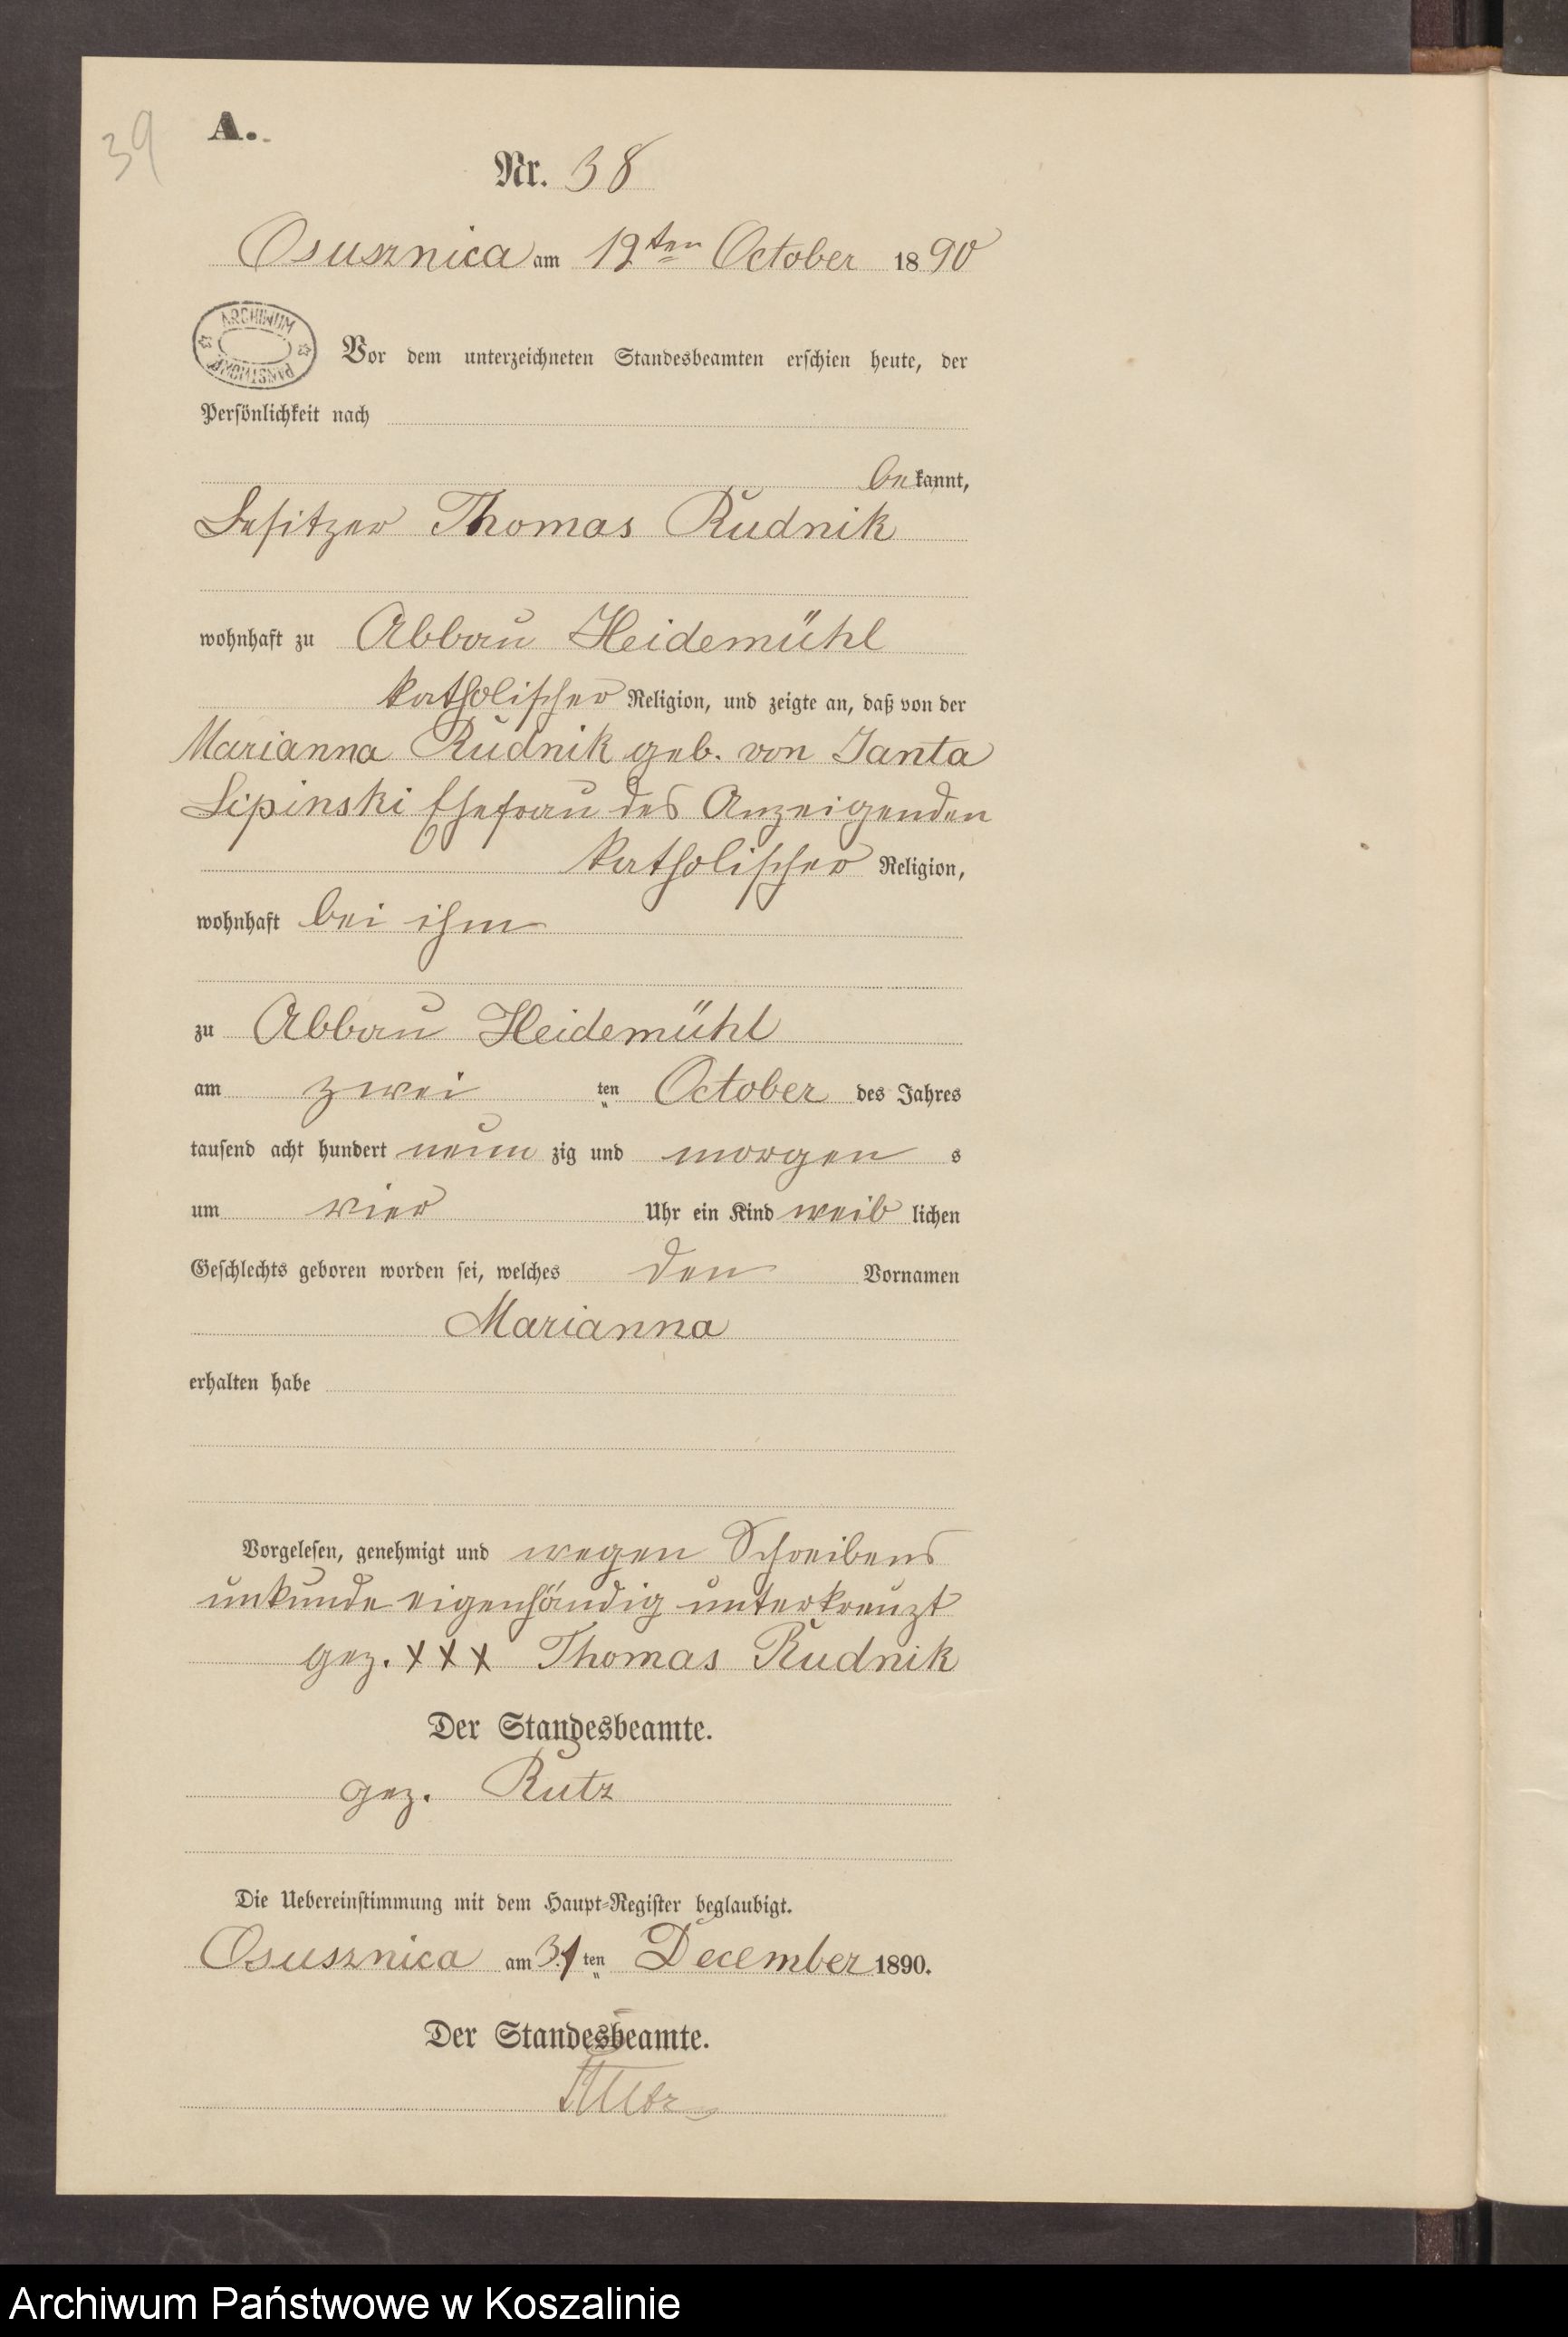 39
A.
Nr. 38
Osusznica am 12ten October 1890
ARCHIWUM PAŃSTWOWE
Vor dem unterzeichneten Standesbeamten erschien heute, der
Persönlichkeit nach
bekannt,
Besitzer Thomas Rudnik
wohnhaft zu Abbau Heidemühl
katholischer Religion, und zeigte an, daß von der
Marianna Rudnik geb. von Janta
Lipinski Ehefrau des Anzeigenden
katholischer Religion,
wohnhaft bei ihm
zu Abbau Heidemühl
am zwei ten October des Jahres
tausend acht hundert neun zig und morgen s
um vier Uhr ein Kind weib lichen
Geschlechts geboren worden sei, welches den Vornamen
Marianna
erhalten habe
Vorgelesen, genehmigt und wegen Schreibens
unkunde eigenhändig unterkreuzt
gez. XXX Thomas Rudnik
Der Standesbeamte.
gez. Rutz
Die Uebereinstimmung mit dem Haupt-Register beglaubigt.
Osusznica am 31ten December 1890.
Der Standesbeamte.
Rutz
Archiwum Państwowe w Koszalinie